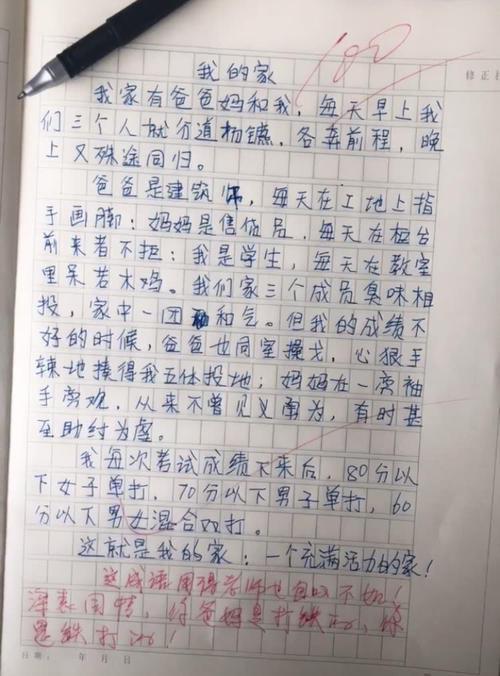 100
修正栏
我的家
我家有爸爸妈和我，每天早上我
们三个人就分道扬镳，各奔前程，晚
上又殊途同归。
爸爸是建筑师，每天在工地上指
手画脚：妈妈是售货员，每天在柜台
前来者不拒：我是学生，每天在教室
里呆若木鸡。我们家三个成员臭味相
投，家中一团和气。但我的成绩不
好的时候，爸爸也同室操戈，心狠手
辣地揍得我五体投地；妈妈在一旁袖
手旁观，从来不曾见义勇为，有时甚
至助纣为虐。
我每次考试成绩下来后，80分以
下女子单打，70分以下男子单打，60
分以下男女混合双打。
这就是我的家：一个充满活力的家！
这成语用得老师也自叹不如！
深表同情，你爸妈是打铁的，你
是铁打的！
日期： 年 月 日